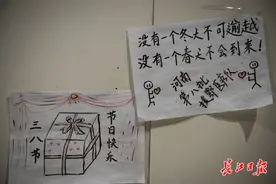 没有一个冬天不可逾越
没有一个春天不会到来！
河南
第八批
援鄂医疗队
三八节
节日快乐
长江日报